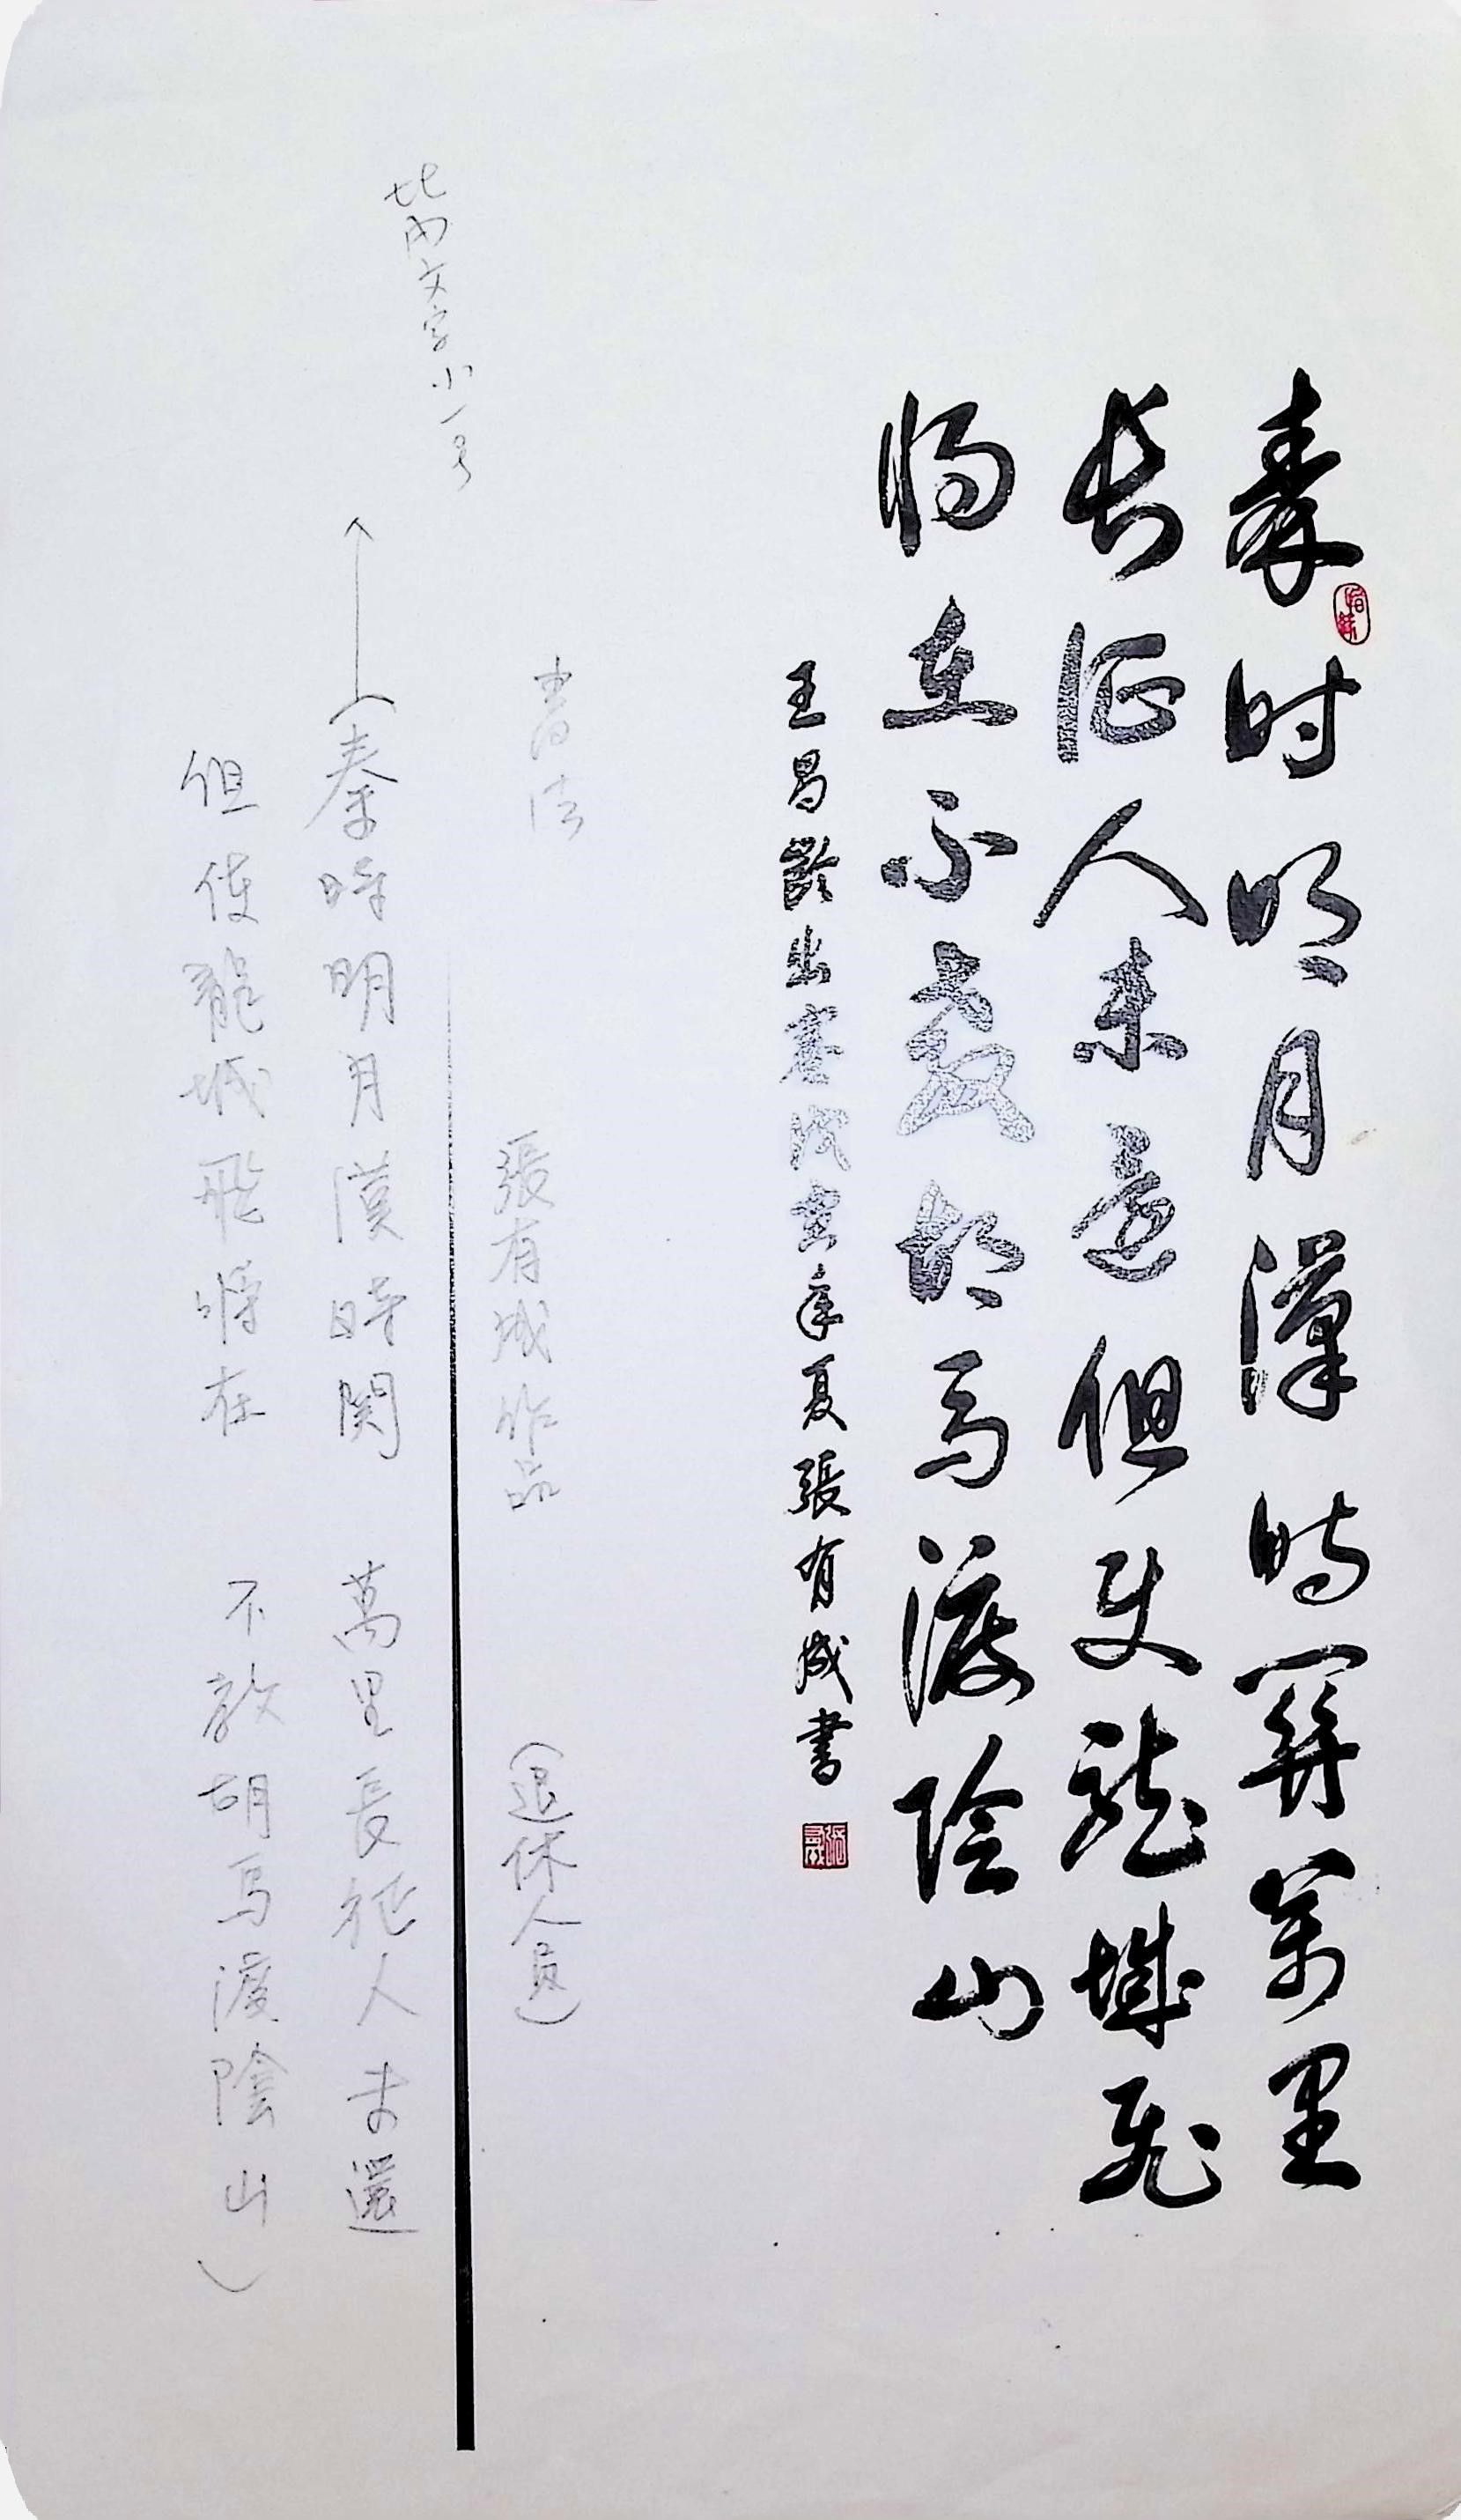 秦时明月漢時關萬里
长征人未還但使龙城飛
将在不教胡马渡陰山
王昌齡出塞戊寅年夏張有成書
書法 張有成作品 (退休人員)
比内文字小一号
(秦時明月漢時関 萬里長征人未還
但使龍城飛將在 不教胡馬渡陰山)